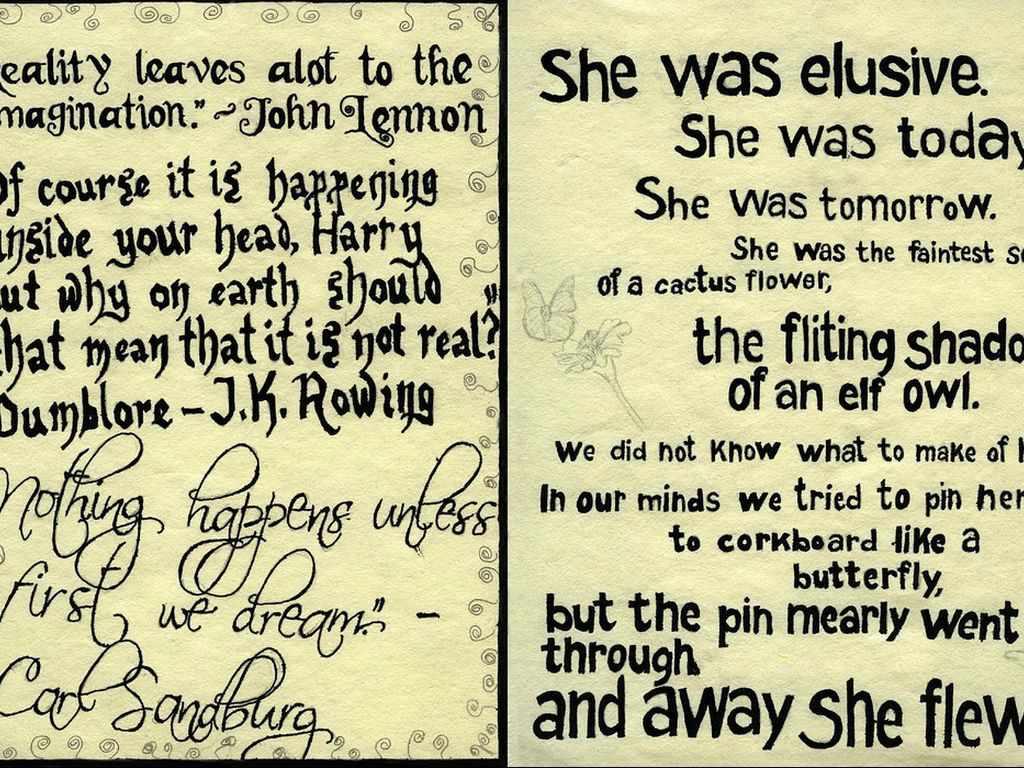 eality leaves alot to the
magination." ~ John Lennon
Of course it is happening
inside your head, Harry
ut why on earth should
that mean that it is not real?"
Dumblore - J.K. Rowing
Nothing happens unless
first we dream." -
Carl Sandburg
She was elusive.
She was today
She was tomorrow.
She was the faintest s
of a cactus flower,
the fliting shado
of an elf owl.
We did not know what to make of h
In our minds we tried to pin her
to corkboard like a
butterfly,
but the pin mearly went
through
and away she flew